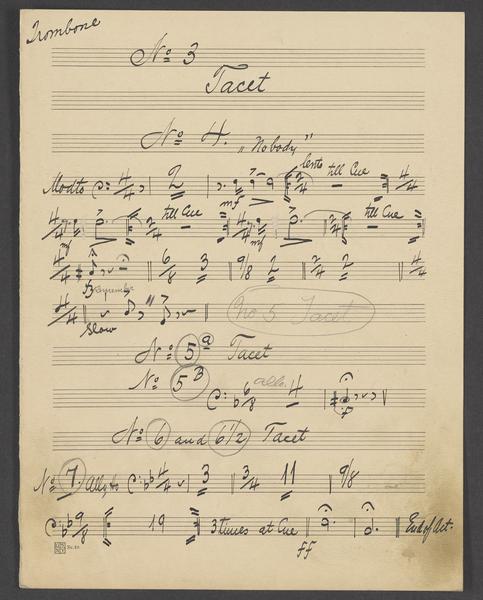 Trombone
No 3
Tacet
No 4. "Nobody"
Modto 4/4 2 mf lento 2/4 till Cue 4/4
4/4 mf 2/4 till Cue 4/4 mf 2/4 till Cue
4/4 6/8 3 9/8 2 2/4 2 4/4
4/4 Slow No 5 Tacet
No 5a Tacet
No 5B 6/8 allo. 4 f
No 6 and 6 1/2 Tacet
No 7. Allo 4/4 3 3/4 11 9/8
9/8 19 3 times at Cue ff End of Act.